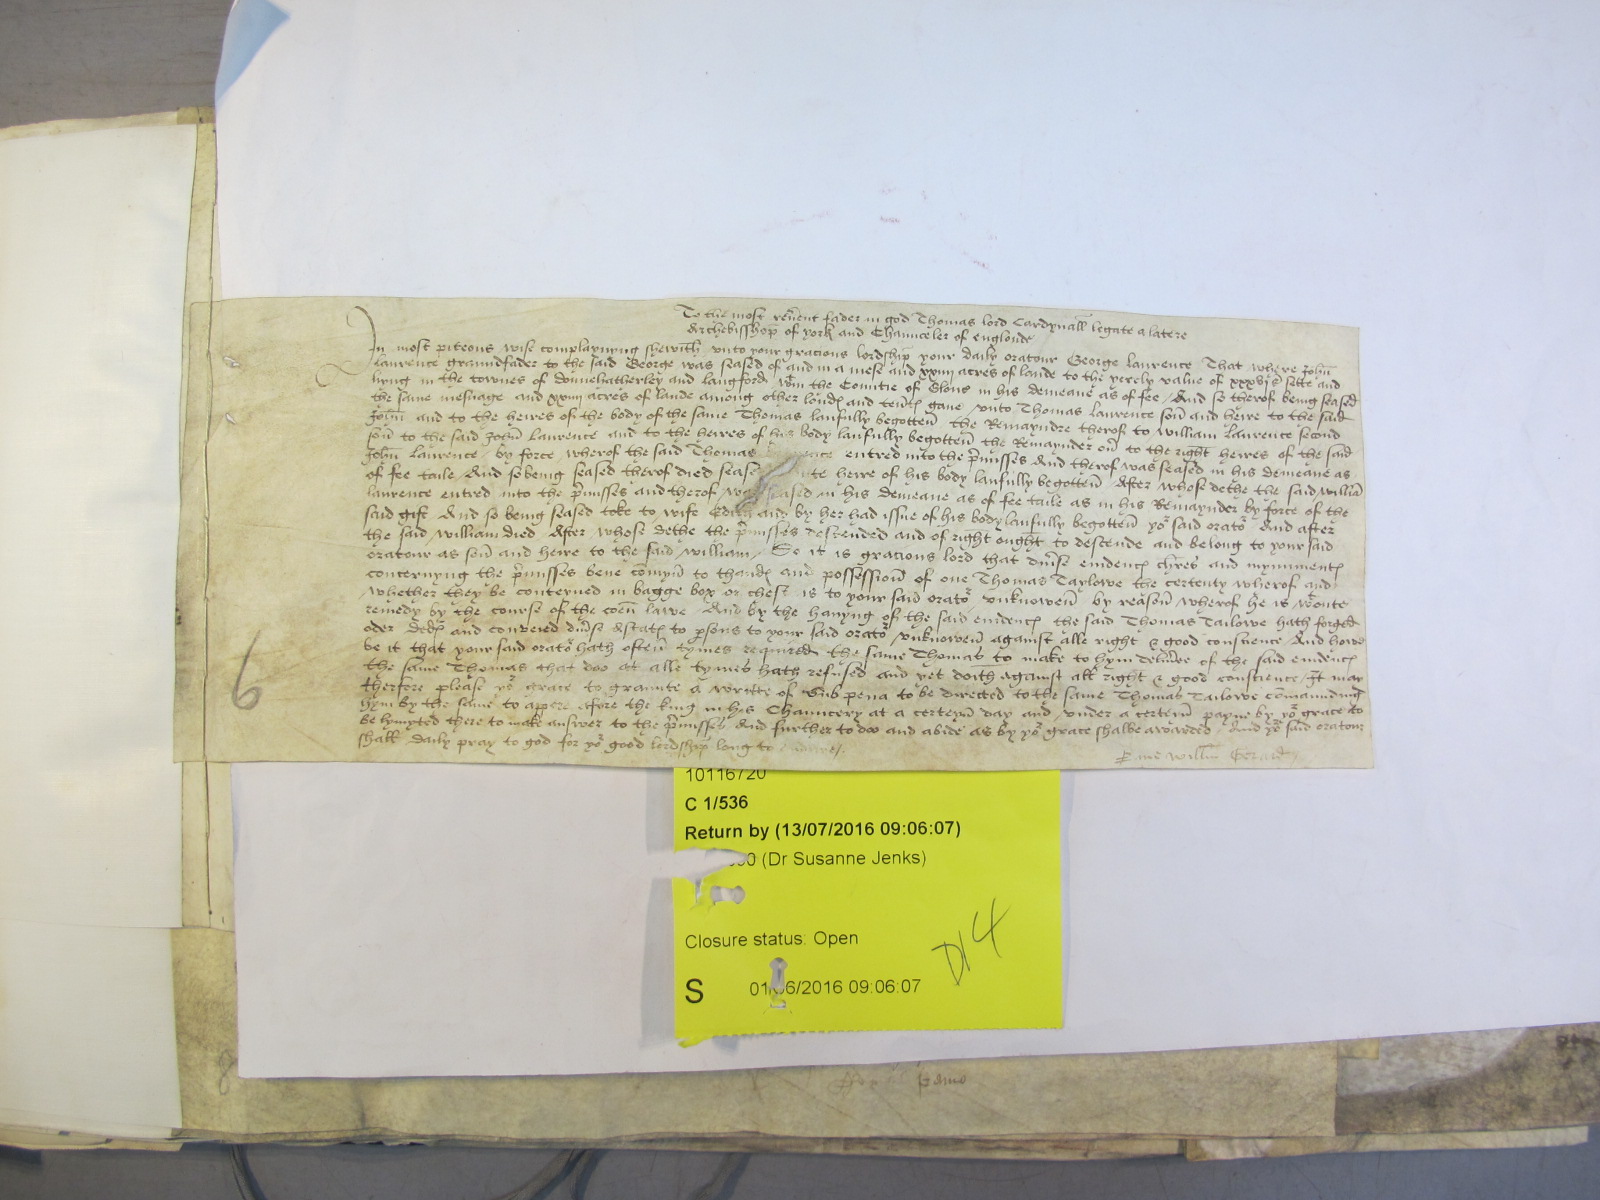 To the most reu̅ent fader in god Thomas lord Cardynall legate a latere
Archebisshop of york and Chaunceler of englonde
In most piteous wise complaynyng shewith vnto your gracious lordship your daily oratour George laurence That where John̅
laurence graundfader to the said George was seased of and in a mese and xxiiij acres of lande to the yerely value of xxxvjs sette and
lying in the townes of Dounehatherley and langford wt̅in the Countie of Glouc in his demeane as of fee / And so therof being seased
the same mesuage and xxiiij acres of lande among other londes and ten̅tes gave vnto Thomas laurence son̅ and heire to the said
John̅ and to the heires of the body of the same Thomas laufully begotten̅ the Remayndre therof to William laurence second
son̅ to the said John̅ laurence and to the heires of his body laufully begotten̅ the Remaynder ou̅ to the right heires of the said
John̅ laurence / by force wherof the said Thomas entred into the p̅misses And therof was seased in his demeane as
of fee taile / And so being seased therof died heire of his body laufully begotten̅ After whose dethe the said Willia̅
laurence entred into the p̅misses and therof was seased in his demeane as of fee taile as in his Remaynder by force of the
said gift And so being seased toke to wife Edith and by her had issue of his body laufully begotten̅ yor said orator And after
the said William died After whose dethe the p̅misses descended and of right ought to descende and belong to your said
oratour as son̅ and heire to the said William / So it is gracious lord that diu̅se euidences ch̅res and mynimentes
concernyng the p̅misses bene comyn̅ to thandes and possession̅ of one Thomas Taylowe the certenty wherof and
whether they be conteyned in bagge box or chest is to your said orator vnknowen̅ by reason̅ wherof he is wt̅oute
remedy by the course of the coen̅ lawe / And by the hauyng of the said euidences the said Thomas Tailowe hath forged
oder dedes and conveied diu̅se astates to p̱sons to your said orator vnknowen̅ against alle right & good conscience And howe
be it that your said orator hath often̅ tymes required the same Thomas to make to hym delyu̅e of the said euidences
the same Thomas that doo at alle tymes hath refused and yet doith against all right & good conscience It may
therfore please yor grace to graunte a writte of Sub pena to be directed to the same Thomas Tailowe co̅maunding
hym by the same to appere afore the king in his Chauncery at a certeyn̅ day and vnder a certeyn̅ payne by yor grace to
be lymyted there to make answer to the p̅misses And further to doo and abide as by yor grace shalbe awarded / And yor said oratour
shall daily pray to god for yor good lordship long to
p̱ me Will̅m Gerard
6
10116720
C 1/536
Return by (13/07/2016 09:06:07)
(Dr Susanne Jenks)
Closure status: Open
D14
S 01/06/2016 09:06:07
8